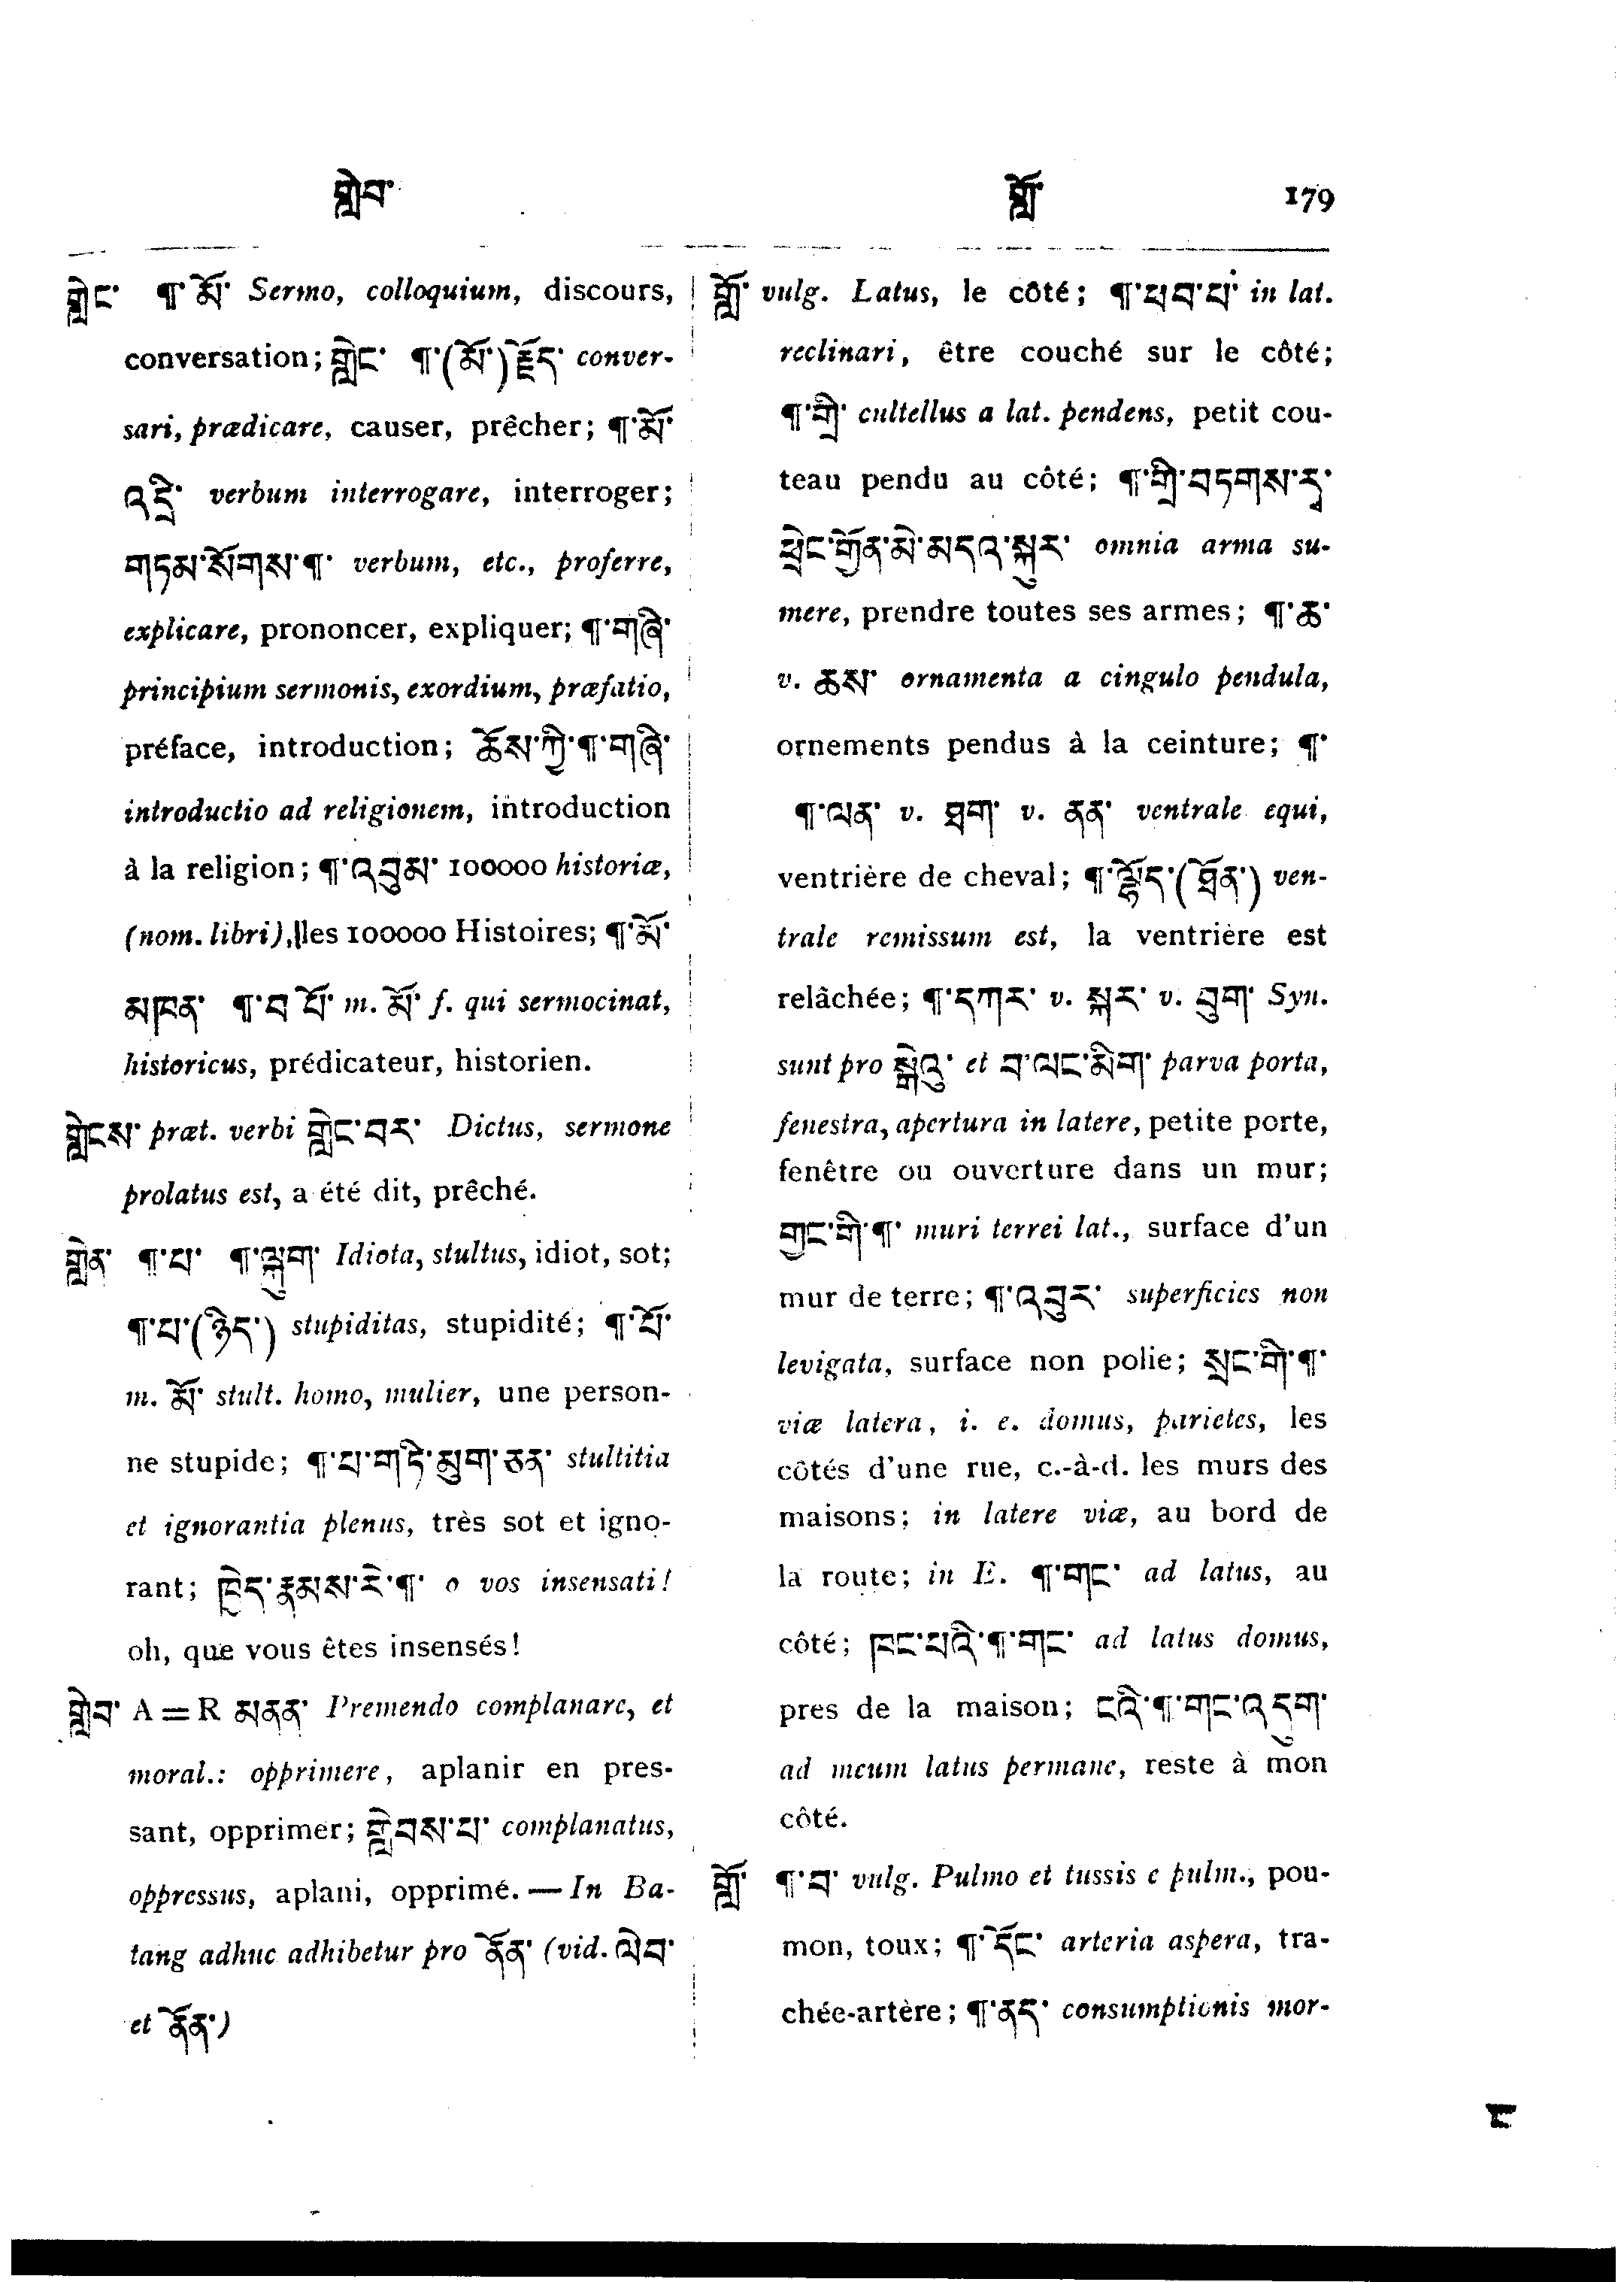 གླེབ་
གློ་ 179
གླེང་ ¶་མོ་ Sermo, colloquium, discours,
conversation; གླེང་ ¶་(མོ་)རྗོད་ conver-
sari, prædicare, causer, prêcher; ¶་མོ་
འདྲི་ verbum interrogare, interroger;
གཏམ་སོགས་¶་ verbum, etc., proferre,
explicare, prononcer, expliquer; ¶་གཞི་
principium sermonis, exordium, præfatio,
préface, introduction; ཆོས་ཀྱི་¶་གཞི་
introductio ad religionem, introduction
à la religion; ¶་འབུམ་ 100000 historiæ,
(nom. libri), les 100000 Histoires; ¶་མོ་
མཁན་ ¶་བ་པོ་ m. མོ་ f. qui sermocinat,
historicus, prédicateur, historien.
གླེངས་ præt. verbi གླེང་བར་ Dictus, sermone
prolatus est, a été dit, prêché.
གླེན་ ¶་པ་ ¶་ལྐུག་ Idiota, stultus, idiot, sot;
¶་པ་(ཉིད་) stupiditas, stupidité; ¶་པོ་
m. མོ་ stult. homo, mulier, une person-
ne stupide; ¶་པ་གཏི་མུག་ཅན་ stultitia
et ignorantia plenus, très sot et igno-
rant; ཁྱེད་རྣམས་རེ་¶་ o vos insensati!
oh, que vous êtes insensés!
གླེབ་ A = R མནན་ Premendo complanare, et
moral.: opprimere, aplanir en pres-
sant, opprimer; གླེབས་པ་ complanatus,
oppressus, aplani, opprimé. — In Ba-
tang adhuc adhibetur pro ནོན་ (vid. ལེབ་
et ནོན་)
གློ་ vulg. Latus, le côté; ¶་ཕབ་པ་ in lat.
reclinari, être couché sur le côté;
¶་གྲི་ cultellus a lat. pendens, petit cou-
teau pendu au côté; ¶་གྲི་བཏགས་དྭ་
ཕྲེང་གྱོན་མེ་མདའ་སྐུར་ omnia arma su-
mere, prendre toutes ses armes; ¶་ཆ་
v. ཆས་ ornamenta a cingulo pendula,
ornements pendus à la ceinture; ¶་
¶་ལན་ v. ཐག་ v. ནན་ ventrale equi,
ventrière de cheval; ¶་ལྷོད་(ཐོན་) ven-
trale remissum est, la ventrière est
relâchée; ¶་དཀར་ v. སྐར་ v. བུག་ Syn.
sunt pro སྒེའུ་ et བ་ལང་མིག་ parva porta,
fenestra, apertura in latere, petite porte,
fenêtre ou ouverture dans un mur;
གྱང་གི་¶་ muri terrei lat., surface d'un
mur de terre; ¶་འབུར་ superficies non
levigata, surface non polie; སྲང་གི་¶་
viæ latera, i. e. domus, parietes, les
côtés d'une rue, c.-à-d. les murs des
maisons; in latere viæ, au bord de
la route; in E. ¶་གང་ ad latus, au
côté; ཁང་པའི་¶་གང་ ad latus domus,
pres de la maison; ངའི་¶་གང་འདུག་
ad meum latus permane, reste à mon
côté.
གློ་ ¶་བ་ vulg. Pulmo et tussis e pulm., pou-
mon, toux; ¶་དོང་ arteria aspera, tra-
chée-artère; ¶་ནད་ consumptionis mor-